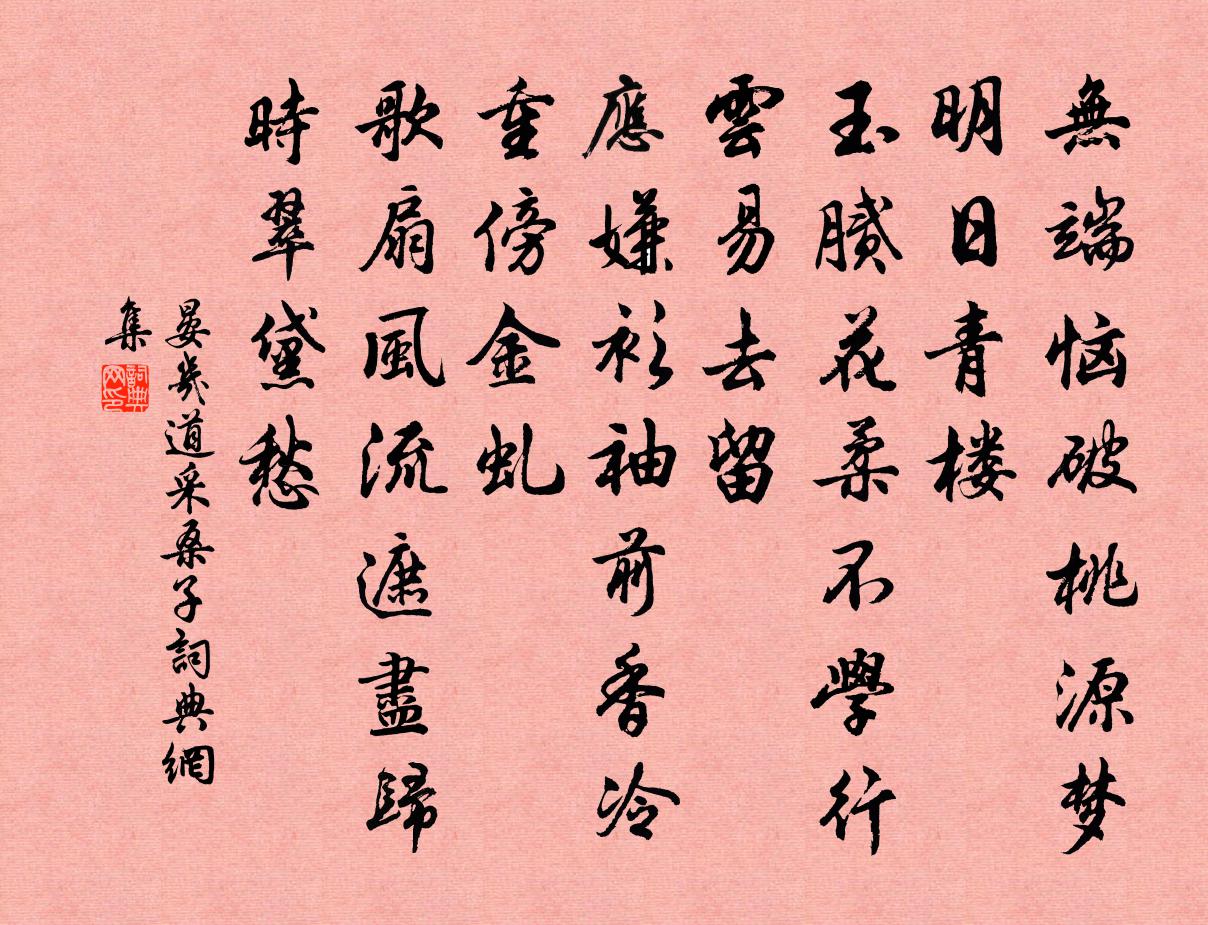 無端恼破桃源梦
明日青楼
玉膩花柔不學行
雲易去留
應嫌衫袖前香冷
重傍金虬
歌扇風流遮盡歸
時翠黛愁
晏幾道采桑子詞典網
集
詞典网印